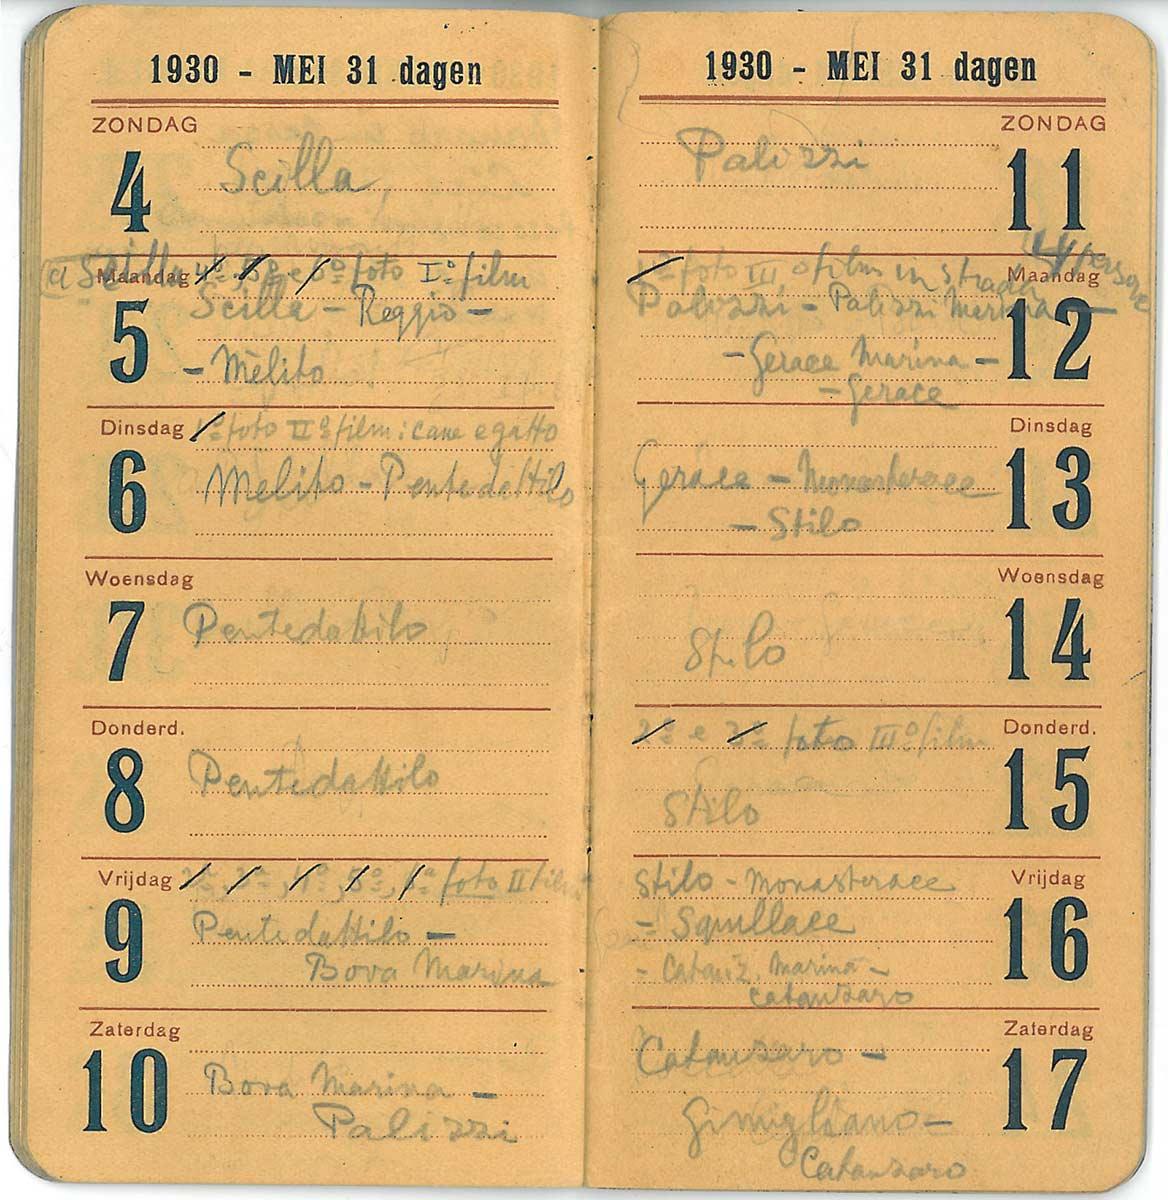 1930 - MEI 31 dagen
ZONDAG
4
Scilla,
a Scilla 4ª, 5ª e 6ª foto Iº film
Maandag
5
Scilla - Reggio -
- Melito
Dinsdag
1ª foto IIº film: cane e gatto
6
Melito - Pentedattilo
Woensdag
7
Pentedattilo
Donderd.
8
Pentedattilo
Vrijdag
2ª, 3ª, 4ª, 5ª, 6ª foto II film
9
Pentedattilo -
Bova Marina
Zaterdag
10
Bova Marina -
Palizzi
1930 - MEI 31 dagen
ZONDAG
11
Palizzi
1ª foto IIIº film in strada
Maandag
12
Palizzi - Palizzi Marina -
- Gerace Marina -
- Gerace
Dinsdag
13
Gerace - Monasterace
- Stilo
Woensdag
14
Stilo
2ª e 3ª foto IIIº film
Donderd.
15
Stilo
Vrijdag
16
Stilo - Monasterace
- Squillace
- Catanz. Marina -
Catanzaro
Zaterdag
17
Catanzaro -
Gimigliano -
Catanzaro